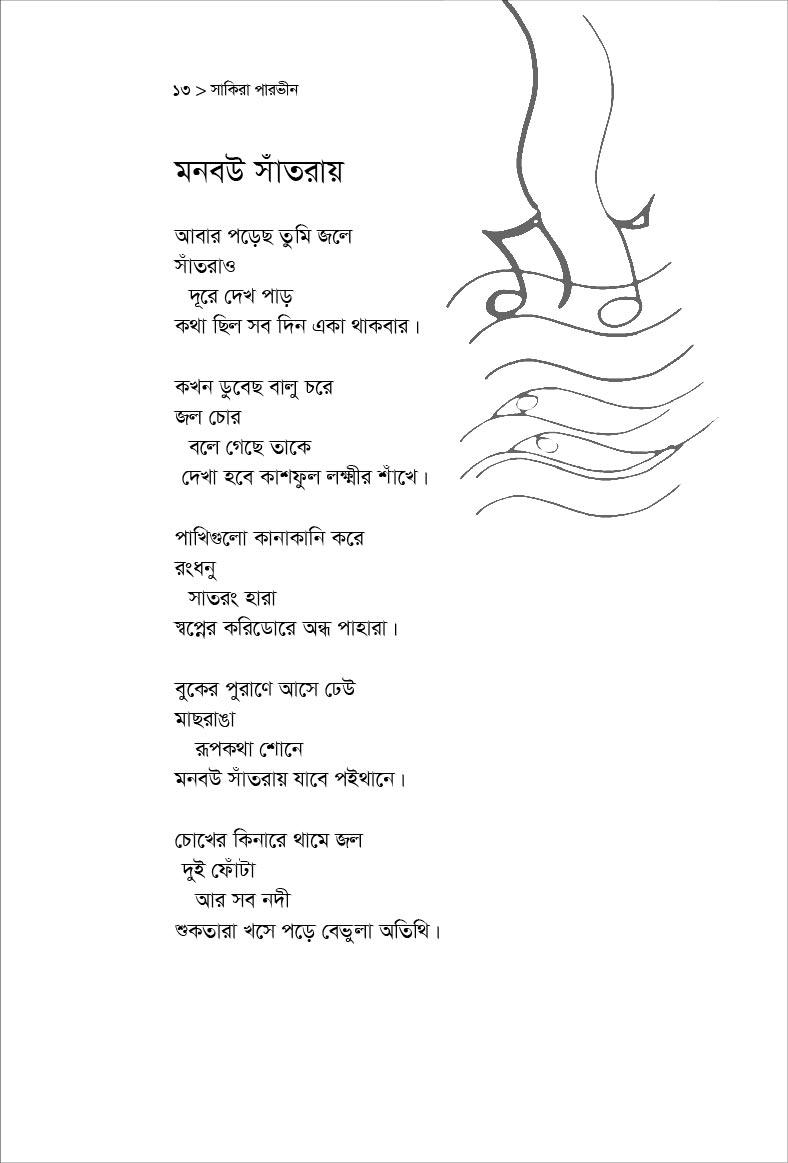 ১৩ > সাকিরা পারভীন
মনবউ সাঁতরায়
আবার পড়েছ তুমি জলে
সাঁতরাও
দূরে দেখ পাড়
কথা ছিল সব দিন একা থাকবার।
কখন ডুবেছ বালু চরে
জল চোর
বলে গেছে তাকে
দেখা হবে কাশফুল লক্ষ্মীর শাঁখে।
পাখিগুলো কানাকানি করে
রংধনু
সাতরং হারা
স্বপ্নের করিডোরে অন্ধ পাহারা।
বুকের পুরাণে আসে ঢেউ
মাছরাঙা
রূপকথা শোনে
মনবউ সাঁতরায় যাবে পইথানে।
চোখের কিনারে থামে জল
দুই ফোঁটা
আর সব নদী
শুকতারা খসে পড়ে বেভুলা অতিথি।